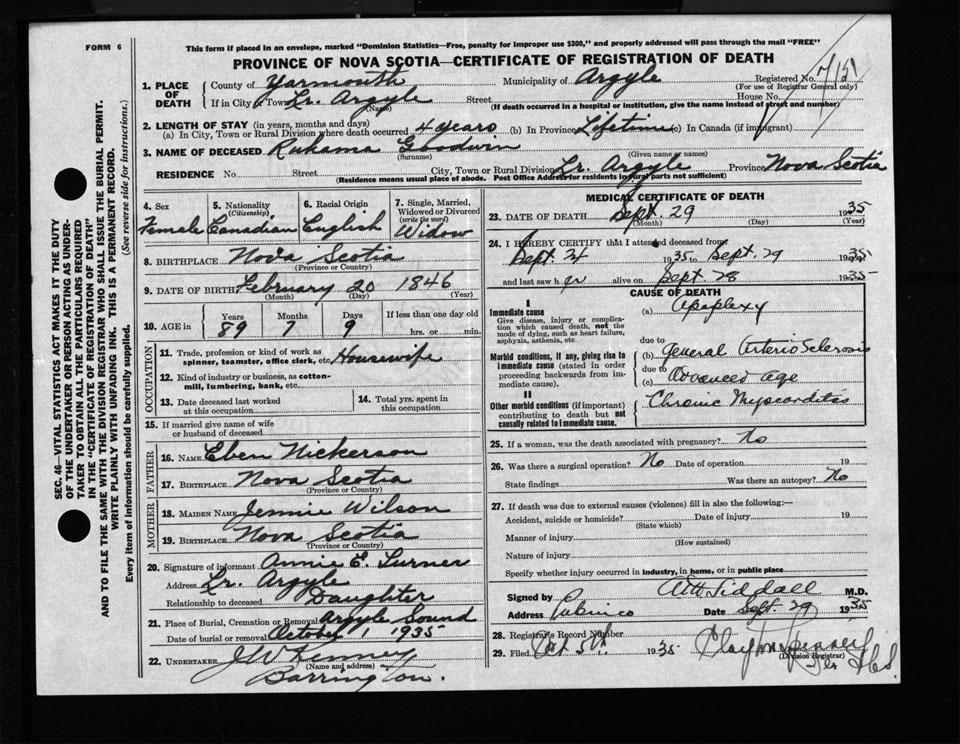 FORM 6
This form if placed in an envelope, marked "Dominion Statistics—Free, penalty for improper use $300," and properly addressed will pass through the mail "FREE"
PROVINCE OF NOVA SCOTIA—CERTIFICATE OF REGISTRATION OF DEATH
SEC. 46—VITAL STATISTICS ACT MAKES IT THE DUTY
OF THE UNDERTAKER OR PERSON ACTING AS UNDER-
TAKER TO OBTAIN ALL THE PARTICULARS REQUIRED
IN THE "CERTIFICATE OF REGISTRATION OF DEATH"
AND TO FILE THE SAME WITH THE DIVISION REGISTRAR WHO SHALL ISSUE THE BURIAL PERMIT.
WRITE PLAINLY WITH UNFADING INK. THIS IS A PERMANENT RECORD.
Every item of Information should be carefully supplied. (See reverse side for instructions.)
1. PLACE OF DEATH County of Yarmouth Municipality of Argyle Registered No.
(For use of Registrar General only)
If in City or Town Lr. Argyle Street House No.
(Name) (If death occurred in a hospital or institution, give the name instead of street and number)
2. LENGTH OF STAY (in years, months and days)
(a) In City, Town or Rural Division where death occurred 4 years (b) In Province Lifetime (c) In Canada (if immigrant)
3. NAME OF DECEASED Rukama Goodwin
(Surname) (Given name or names)
RESIDENCE No. Street City, Town or Rural Division Lr. Argyle Province Nova Scotia
(Residence means usual place of abode. Post Office Address for residents in rural parts not sufficient)
4. Sex Female
5. Nationality (Citizenship) Canadian
6. Racial Origin English
7. Single, Married, Widowed or Divorced (write the word) Widow
8. BIRTHPLACE Nova Scotia
(Province or Country)
9. DATE OF BIRTH February 20 1846
(Month) (Day) (Year)
10. AGE in Years Months Days If less than one day old
89 7 9 hrs. or min.
OCCUPATION
11. Trade, profession or kind of work as spinner, teamster, office clerk, etc. Housewife
12. Kind of industry or business, as cotton-mill, lumbering, bank, etc.
13. Date deceased last worked at this occupation
14. Total yrs. spent in this occupation
15. If married give name of wife or husband of deceased
FATHER
16. NAME Eben Nickerson
17. BIRTHPLACE Nova Scotia
(Province or Country)
MOTHER
18. MAIDEN NAME Jennie Wilson
19. BIRTHPLACE Nova Scotia
(Province or Country)
20. Signature of informant Annie E. Turner
Address Lr. Argyle
Relationship to deceased Daughter
21. Place of Burial, Cremation or Removal Argyle Sound
Date of burial or removal October 1 1935
22. UNDERTAKER J W Kenney
(Name and address)
Barrington.
MEDICAL CERTIFICATE OF DEATH
23. DATE OF DEATH Sept. 29 1935
(Month) (Day) (Year)
24. I HEREBY CERTIFY that I attended deceased from
Sept. 1935 to Sept. 29 1935
and last saw her alive on Sept 28 1935
CAUSE OF DEATH
I
Immediate cause
Give disease, injury or complication which caused death, not the mode of dying, such as heart failure, asphyxia, asthenia, etc.
(a) Apoplexy
due to
Morbid conditions, if any, giving rise to immediate cause (stated in order proceeding backwards from immediate cause).
(b) General Arterio Sclerosis
due to
(c) Advanced Age
II
Other morbid conditions (if important) contributing to death but not causally related to immediate cause.
Chronic Myocarditis
25. If a woman, was the death associated with pregnancy? No
26. Was there a surgical operation? No Date of operation 19
State findings Was there an autopsy? No
27. If death was due to external causes (violence) fill in also the following:—
Accident, suicide or homicide? Date of injury 19
(State which)
Manner of injury
(How sustained)
Nature of injury
Specify whether injury occurred in industry, in home, or in public place
Signed by Siddall M.D.
Address Pubnico Date Sept. 29 1935
28. Registrar's Record Number
29. Filed Oct 5th 1935
(Division Registrar)